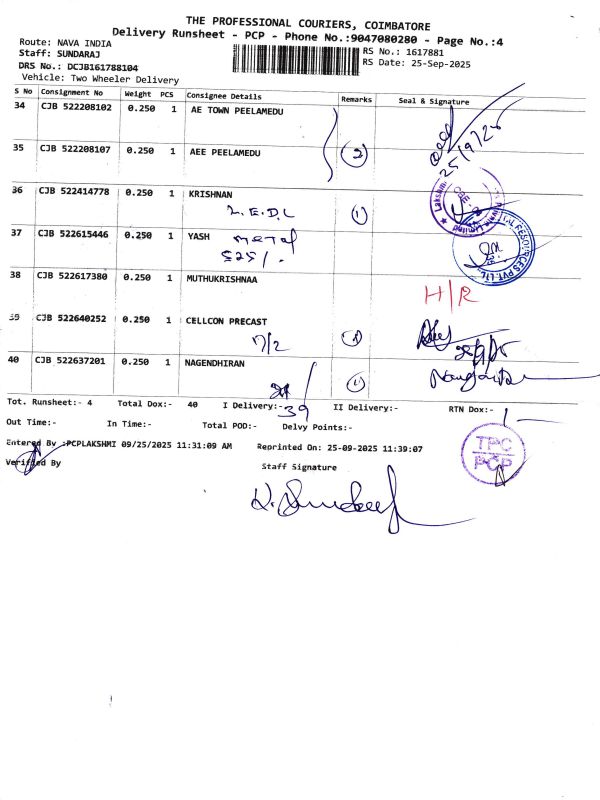 THE PROFESSIONAL COURIERS, COIMBATORE
Delivery Runsheet - PCP - Phone No.:9047080280 - Page No.:4
Route: NAVA INDIA
Staff: SUNDARAJ
DRS No.: DCJB161788104
Vehicle: Two Wheeler Delivery
RS No.: 1617881
RS Date: 25-Sep-2025
S No Consignment No Weight PCS Consignee Details Remarks Seal & Signature
34 CJB 522208102 0.250 1 AE TOWN PEELAMEDU
35 CJB 522208107 0.250 1 AEE PEELAMEDU (2) 25/9/25
36 CJB 522414778 0.250 1 KRISHNAN
L.E.D.L (1)
37 CJB 522615446 0.250 1 YASH metal
525/.
38 CJB 522617380 0.250 1 MUTHUKRISHNAA H/R
39 CJB 522640252 0.250 1 CELLCON PRECAST
7/2
40 CJB 522637201 0.250 1 NAGENDHIRAN
Tot. Runsheet:- 4 Total Dox:- 40 I Delivery:- 39 II Delivery:- RTN Dox:- 1
Out Time:- In Time:- Total POD:- Delvy Points:-
Entered By :PCPLAKSHMI 09/25/2025 11:31:09 AM Reprinted On: 25-09-2025 11:39:07
Verified By Staff Signature
TPC
PCP